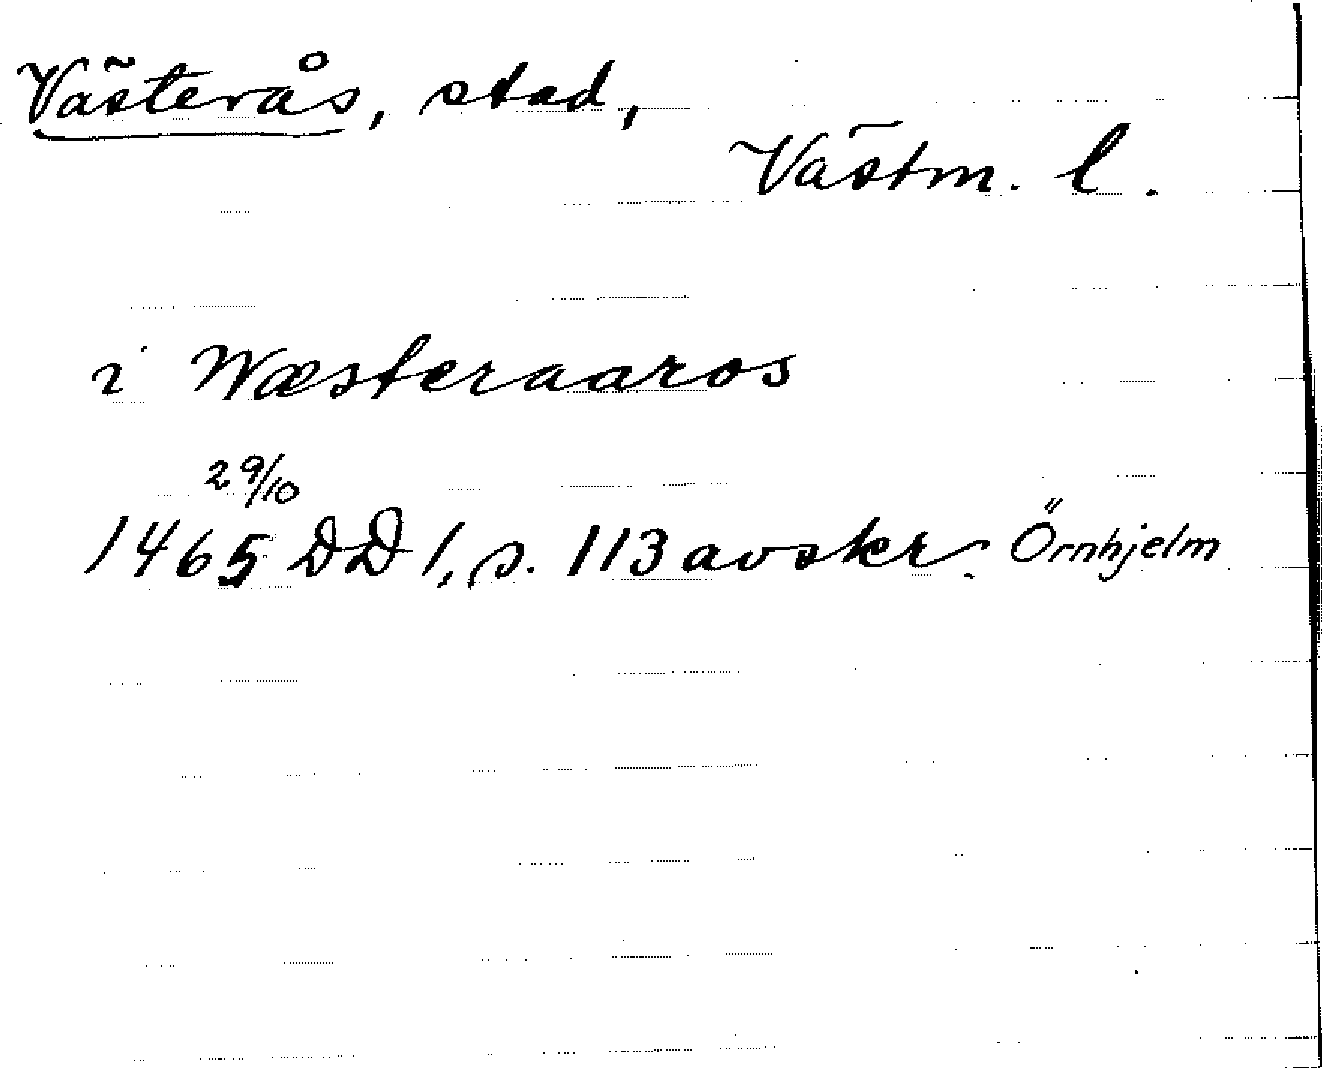 Västerås, stad,
Västm. l.
i Wæsteraaros
29/10
1465 DD 1, s. 113 avskr. Örnhjelm